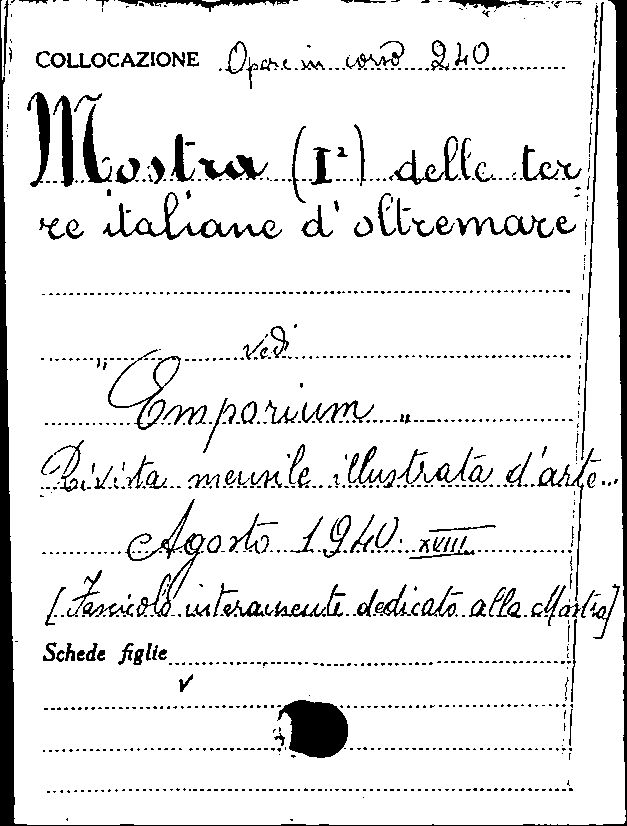 COLLOCAZIONE Opere in corso 240
Mostra (Iª) delle ter=
re italiane d'oltremare
vedi
"Emporium"
Rivista mensile illustrata d'arte...
Agosto 1940. XVIII
[Fascicolo interamente dedicato alla Mostra]
Schede figlie